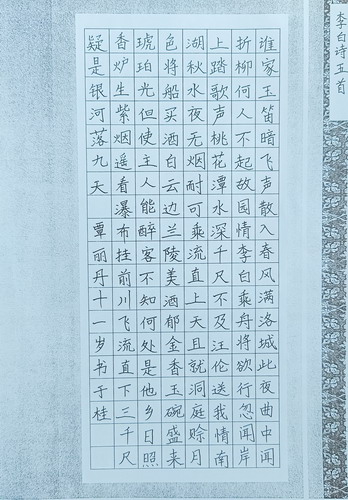 李白诗五首
谁家玉笛暗飞声散入春风满洛城此夜曲中闻
折柳何人不起故园情李白乘舟将欲行忽闻岸
上踏歌声桃花潭水深千尺不及汪伦送我情南
湖秋水夜无烟耐可乘流直上天且就洞庭赊月
色将船买酒白云边兰陵美酒郁金香玉碗盛来
琥珀光但使主人能醉客不知何处是他乡日照
香炉生紫烟遥看瀑布挂前川飞流直下三千尺
疑是银河落九天 覃丽丹十一岁书于桂